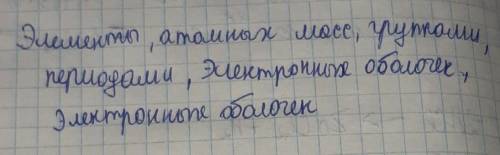 Элементы, атомных масс, группами,
периодами, электронных оболочек,
электронных оболочек